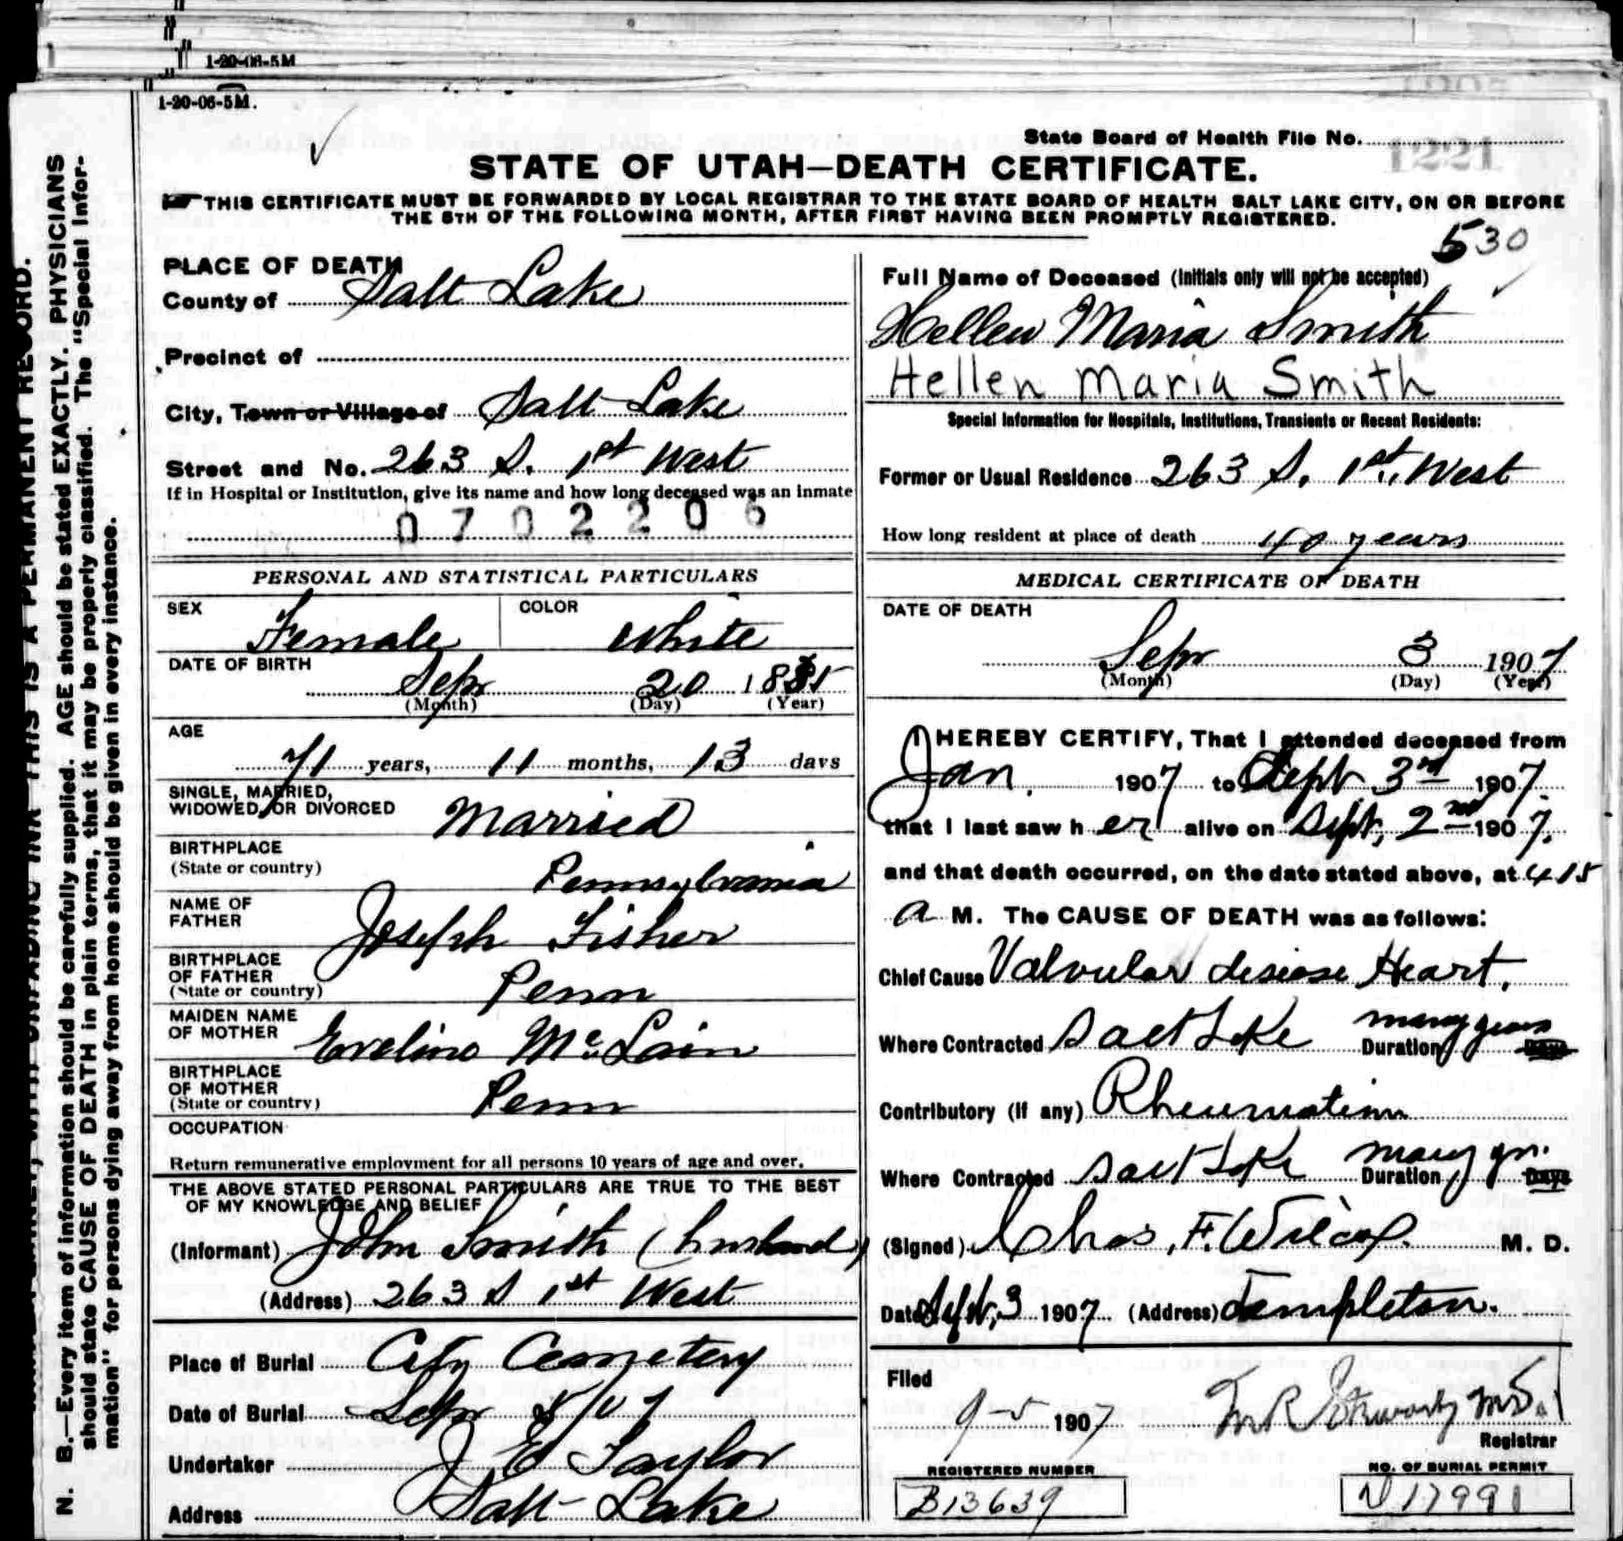 1-20-06-5M
1-20-06-5M.
State Board of Health File No. 1221
STATE OF UTAH—DEATH CERTIFICATE.
THIS CERTIFICATE MUST BE FORWARDED BY LOCAL REGISTRAR TO THE STATE BOARD OF HEALTH SALT LAKE CITY, ON OR BEFORE
THE 5TH OF THE FOLLOWING MONTH, AFTER FIRST HAVING BEEN PROMPTLY REGISTERED.
530
PLACE OF DEATH
County of Salt Lake
Precinct of
City, Town or Village of Salt Lake
Street and No. 263 S. 1st West
If in Hospital or Institution, give its name and how long deceased was an inmate
0702206
PERSONAL AND STATISTICAL PARTICULARS
SEX Female COLOR White
DATE OF BIRTH Sepr 20 1835
(Month) (Day) (Year)
AGE
71 years, 11 months, 13 days
SINGLE, MARRIED,
WIDOWED, OR DIVORCED Married
BIRTHPLACE
(State or country) Pennsylvania
NAME OF
FATHER Joseph Fisher
BIRTHPLACE
OF FATHER
(State or country) Penn
MAIDEN NAME
OF MOTHER Eveline McLain
BIRTHPLACE
OF MOTHER
(State or country) Penn
OCCUPATION
Return remunerative employment for all persons 10 years of age and over.
THE ABOVE STATED PERSONAL PARTICULARS ARE TRUE TO THE BEST
OF MY KNOWLEDGE AND BELIEF
(Informant) John Smith (husband)
(Address) 263 S 1st West
Place of Burial City Cemetery
Date of Burial Sepr 5/07
Undertaker J E Taylor
Address Salt Lake
Full Name of Deceased (Initials only will not be accepted)
Hellen Maria Smith
Hellen Maria Smith
Special Information for Hospitals, Institutions, Transients or Recent Residents:
Former or Usual Residence 263 S. 1st. West
How long resident at place of death 40 years
MEDICAL CERTIFICATE OF DEATH
DATE OF DEATH
Sepr 3 1907
(Month) (Day) (Year)
I HEREBY CERTIFY, That I attended deceased from
Jan. 1907 to Sept 3rd 1907.
that I last saw her alive on Sept, 2nd 1907.
and that death occurred, on the date stated above, at 415
a M. The CAUSE OF DEATH was as follows:
Chief Cause Valvular disease Heart.
Where Contracted Salt Lake Duration many years Days
Contributory (if any) Rheumatism
Where Contracted Salt Lake Duration many yrs. Days
(Signed) Chas. F. Wilcox. M. D.
Date Sept. 3 1907 (Address) Templeton.
Filed
9-5 1907 M.D.
Registrar
REGISTERED NUMBER
B13639
NO. OF BURIAL PERMIT
N 17991
N. B.—Every item of information should be carefully supplied. AGE should be stated EXACTLY. PHYSICIANS
should state CAUSE OF DEATH in plain terms, that it may be properly classified. The "Special Infor-
mation" for persons dying away from home should be given in every instance.
WITH UNFADING INK THIS IS A PERMANENT RECORD.